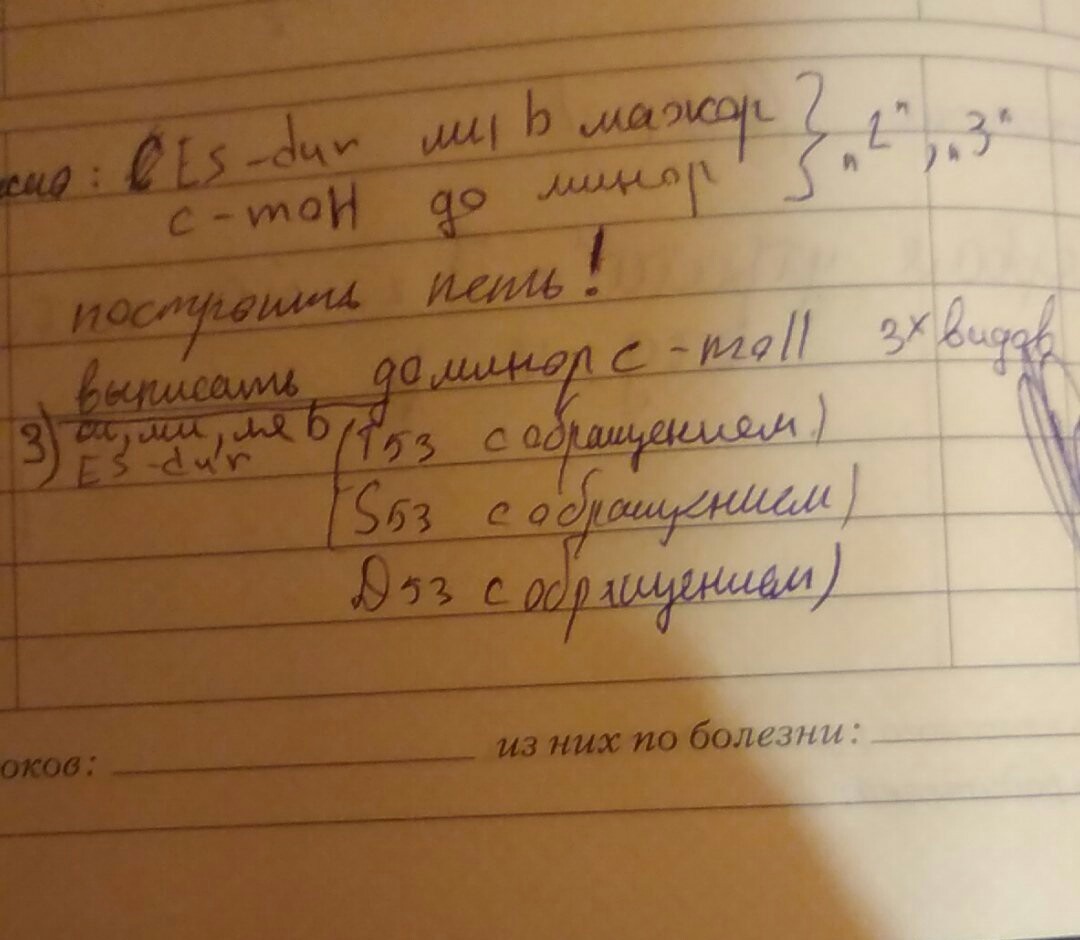 Es-dur ми b мажор } "2", "3"
c-moll до минор
построить петь!
выписать до минор c-moll 3х видов
3) си, ми, ля b (T53 с обращением)
Es-dur
(S53 с обращением)
D53 с обращением)
оков: из них по болезни: